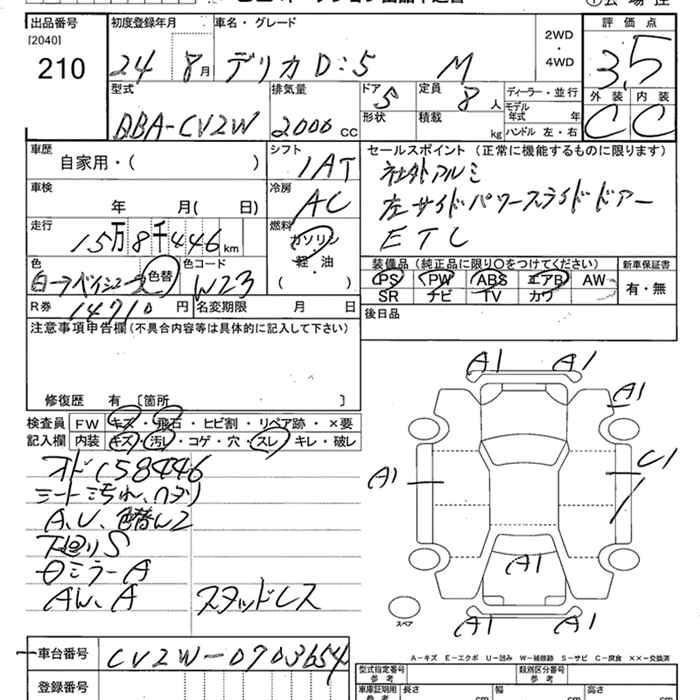 出品番号 初度登録年月 車名・グレード 評価点
[2040]
210
24 8月 デリカD:5 M
2WD
・
4WD
3.5
外装 内装
C C
型式 排気量 ドア 定員 ディーラー・並行
DBA-CV2W 2000 CC 5 8人
モデル年式 年
形状 積載 kg ハンドル 左・右
車歴 シフト セールスポイント (正常に機能するものに限ります)
自家用・( ) IAT
社外アルミ
左サイドパワースライドドアー
ETC
車検 冷房
年 月( 日) AC
走行 燃料
15万8千446km
ガソリン
軽・油
( )
色 色替 色コード
W23
装備品 (純正品に限り○をつけてください) 新車保証書
PS PW ABS エアB AW 有・無
SR ナビ TV カワ
R券 14710円 名変期限 月 日
後日品
注意事項申告欄 (不具合内容等は具体的に記入して下さい)
修復歴 有 [箇所 ]
検査員 FW キズ・飛石・ヒビ割・リペア跡・×要
記入欄 内装 キズ・汚レ・コゲ・穴・スレ・キレ・破レ
オド158446
シート汚れ、ヘタリ
A、U、色替LZ
下廻りS
ミラーA
AW、A スタッドレス
A1 A1
A1
A1 U1
A1
A1 A1
スペア
A-キズ E-エクボ U-凹み W-補修跡 S-サビ C-腐食 ××-交換済
車台番号 CV2W-0703654
登録番号
型式指定番号 参考 類別区分番号 参考
車庫証明用 参考 長さ cm 幅 cm 高さ cm